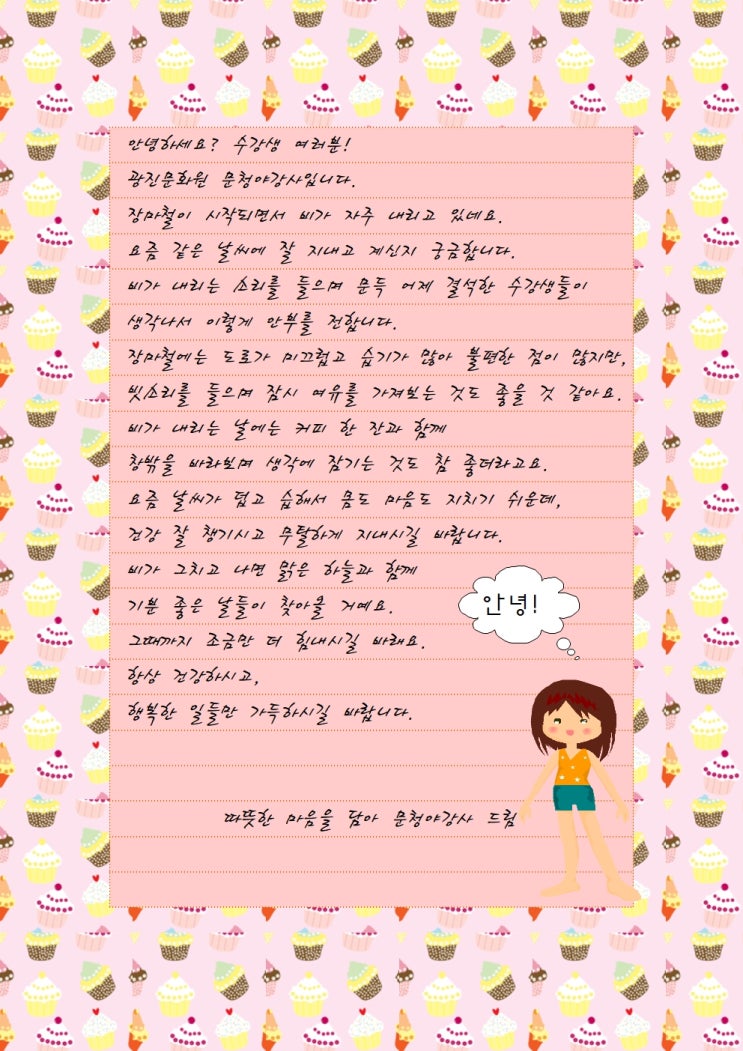 안녕하세요? 수강생 여러분!
광진문화원 문청야강사입니다.
장마철이 시작되면서 비가 자주 내리고 있네요.
요즘 같은 날씨에 잘 지내고 계신지 궁금합니다.
비가 내리는 소리를 들으며 문득 어제 결석한 수강생들이
생각나서 이렇게 안부를 전합니다.
장마철에는 도로가 미끄럽고 습기가 많아 불편한 점이 많지만,
빗소리를 들으며 잠시 여유를 가져보는 것도 좋을 것 같아요.
비가 내리는 날에는 커피 한 잔과 함께
창밖을 바라보며 생각에 잠기는 것도 참 좋더라고요.
요즘 날씨가 덥고 습해서 몸도 마음도 지치기 쉬운데,
건강 잘 챙기시고 무탈하게 지내시길 바랍니다.
비가 그치고 나면 맑은 하늘과 함께
안녕!
기분 좋은 날들이 찾아올 거예요.
그때까지 조금만 더 힘내시길 바래요.
항상 건강하시고,
행복한 일들만 가득하시길 바랍니다.
따뜻한 마음을 담아 문청야강사 드림